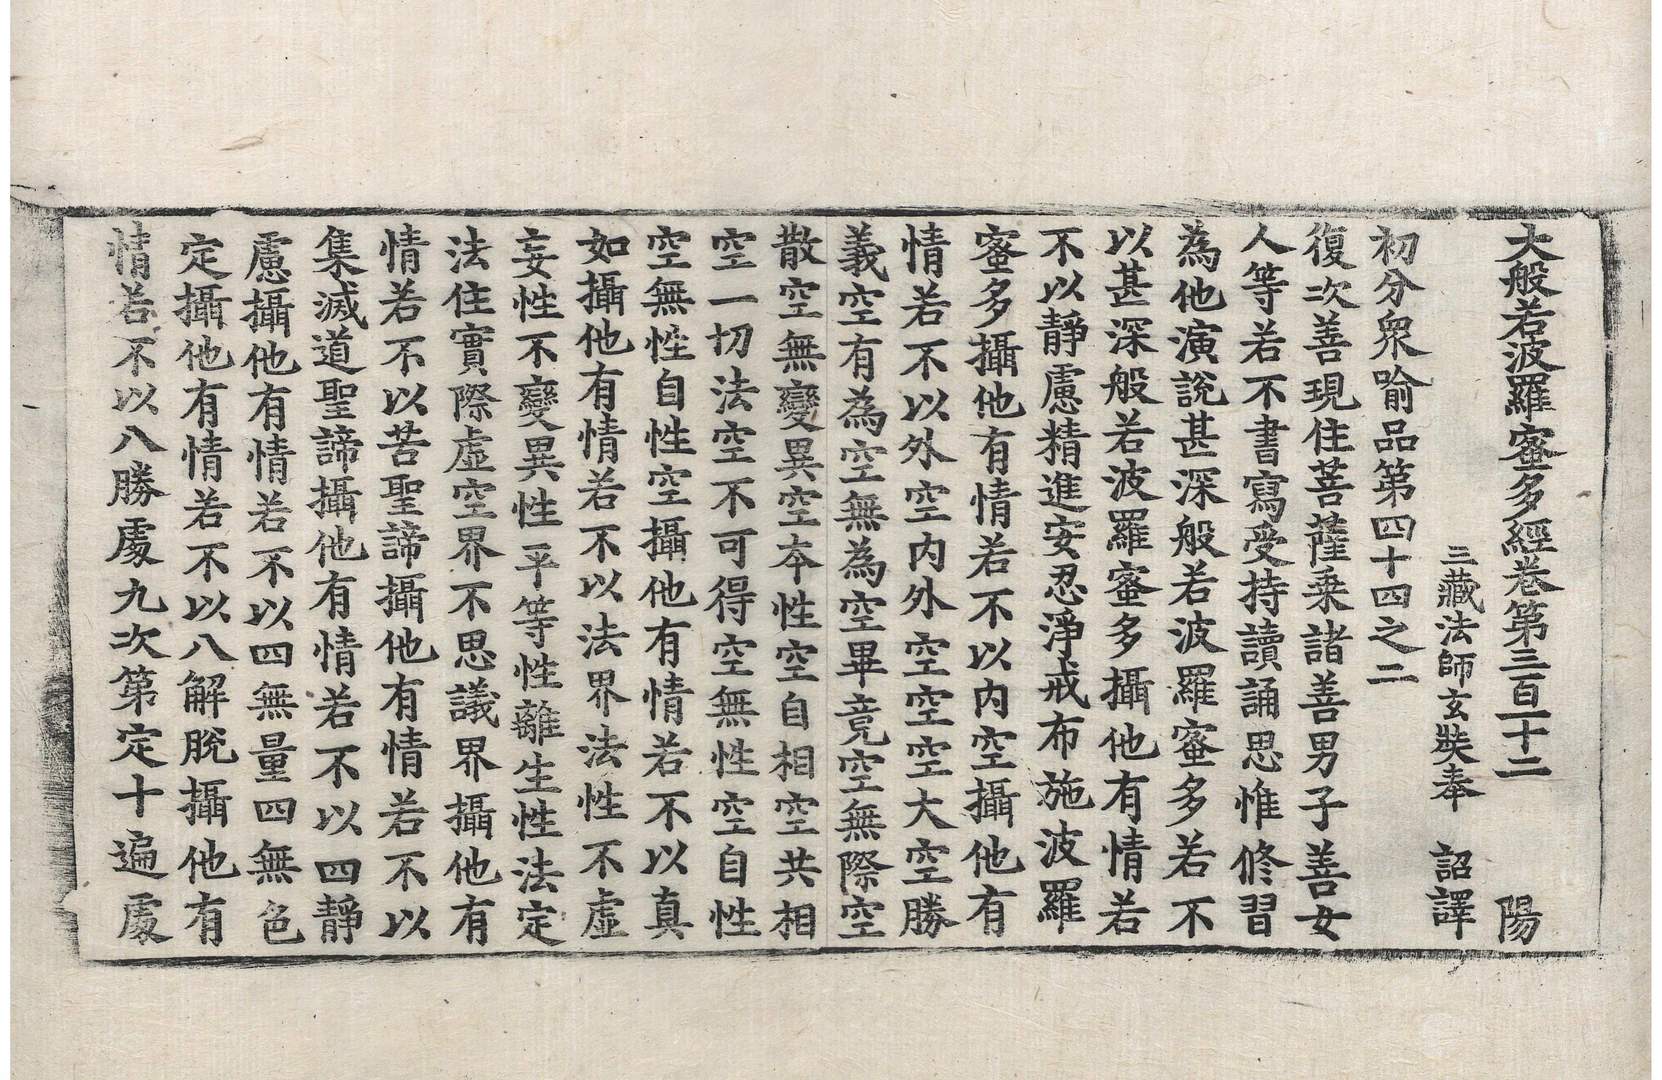 大般若波羅蜜多經卷第三百一十二 陽
三藏法師玄奘奉 詔譯
初分衆喻品第四十四之二
復次善現住菩薩乘諸善男子善女
人等若不書寫受持讀誦思惟修習
為他演說甚深般若波羅蜜多若不
以甚深般若波羅蜜多攝他有情若
不以靜慮精進安忍淨戒布施波羅
蜜多攝他有情若不以内空攝他有
情若不以外空内外空空空大空勝
義空有為空無為空畢竟空無際空
散空無變異空本性空自相空共相
空一切法空不可得空無性空自性
空無性自性空攝他有情若不以真
如攝他有情若不以法界法性不虛
妄性不變異性平等性離生性法定
法住實際虛空界不思議界攝他有
情若不以苦聖諦攝他有情若不以
集滅道聖諦攝他有情若不以四靜
慮攝他有情若不以四無量四無色
定攝他有情若不以八解脫攝他有
情若不以八勝處九次第定十遍處